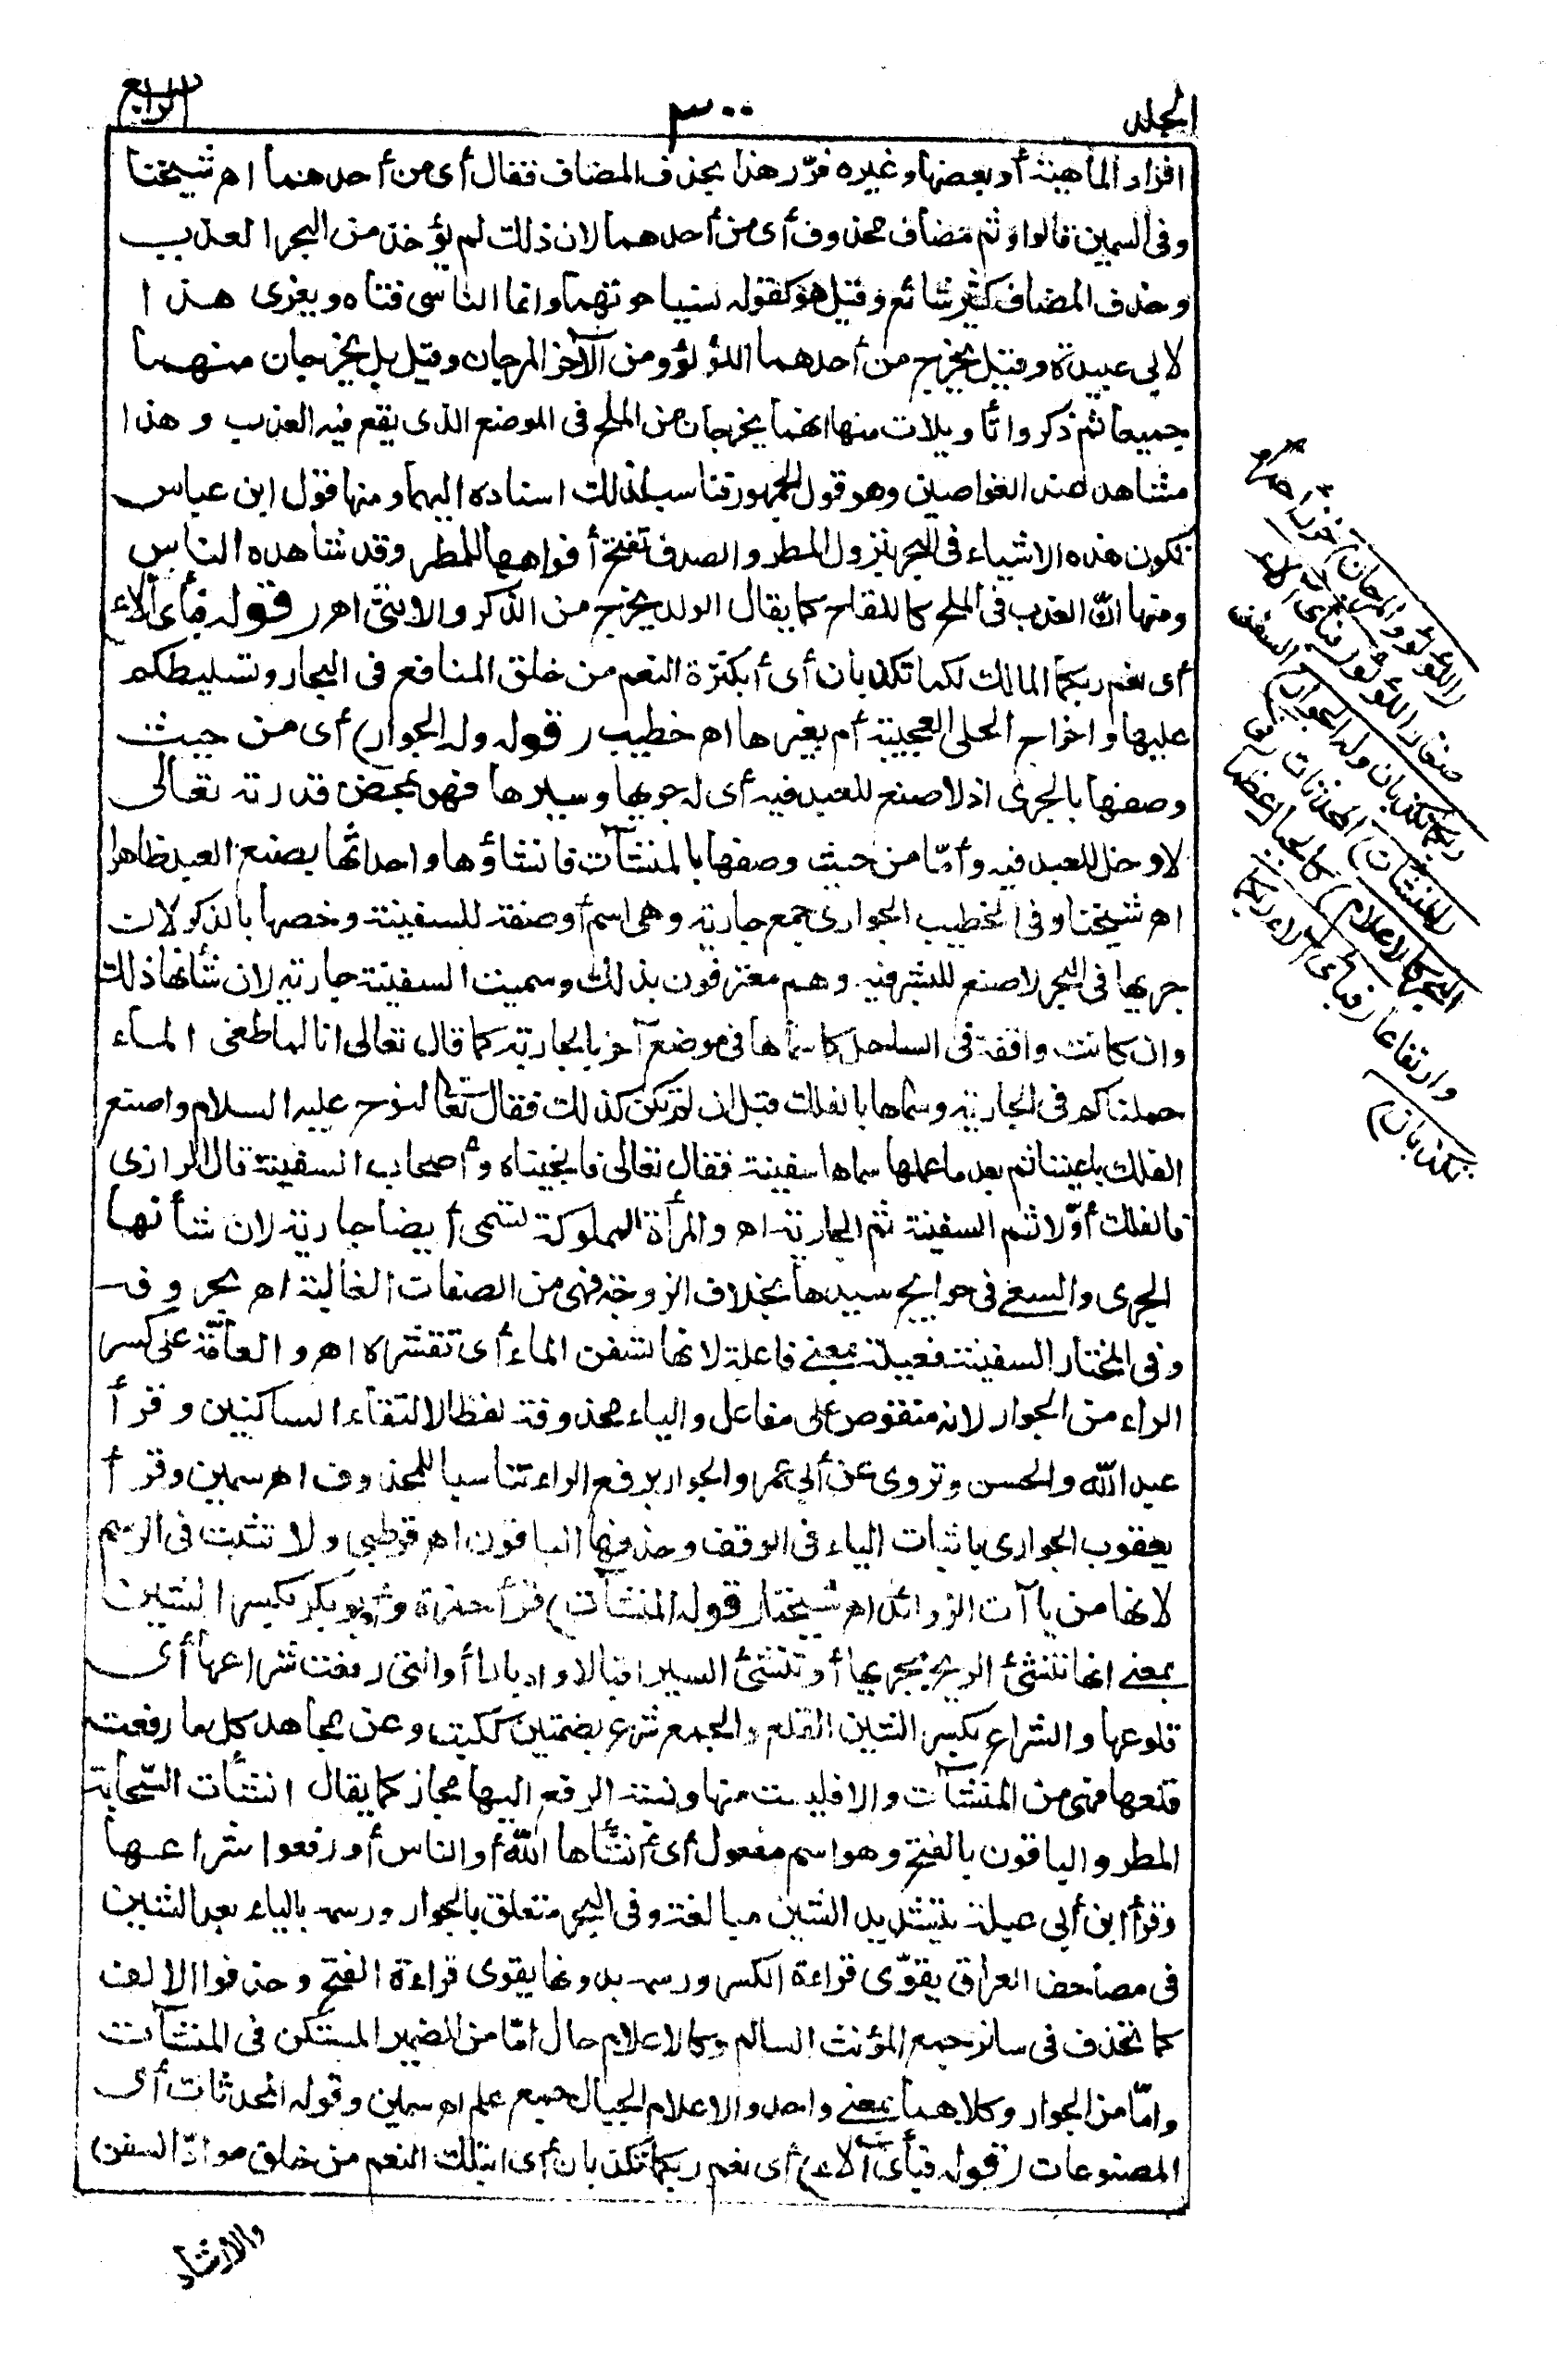 المجلد
٣٠٠
الرابع
افراد الماهية أو بعضها وغيره قرّر هذا بحذف المضاف فقال أى من أحدهما اه شيخنا
وفى السمين قالوا وثم مضاف محذوف أى من أحدهما لان ذلك لم يؤخذ من البحر العذب
وحذف المضاف كثير شائع وقيل هو كقوله نسيا حوتهما وانما الناسى فتاه ويعزى هذا
لابى عبيدة وقيل يخرج من أحدهما اللؤلؤ ومن الآخر المرجان وقيل بل يخرجان منهما
جميعا ثم ذكروا تأويلات منها انهما يخرجان من الملح فى الموضع الذى يقع فيه العذب وهذا
مشاهد عند الغواصين وهو قول الجمهور فناسب لذلك اسناده اليهما ومنها قول ابن عباس
تكون هذه الاشياء فى البحر بنزول المطر والصدف تفتح أفواهها للمطر وقد شاهده الناس
ومنها انّ العذب فى الملح كاللقاح كما يقال الولد يخرج من الذكر والانثى اه (قوله فبأى آلاء
أى نعم ربكما المالك لكما تكذبان أى أبكثرة النعم من خلق المنافع فى البحار وتسليطكم
عليها واخراج الحلى العجيبة أم بغيرها اه خطيب (قوله وله الجوار) أى من حيث
وصفها بالجرى اذ لا صنع للعبد فيه أى له جريها وسيرها فهو بمحض قدرته تعالى
لا دخل للعبد فيه وأمّا من حيث وصفها بالمنشآت فانشاؤها واحداثها بصنع العبد ظاهرا
اه شيخنا وفى الخطيب الجوارى جمع جارية وهى اسم أو صفة للسفينة وخصها بالذكر لان
جريها فى البحر لا صنع للبشر فيه وهم معترفون بذلك وسميت السفينة جارية لان شأنها ذلك
وان كانت واقفة فى الساحل كما سماها فى موضع آخر بالجارية كما قال تعالى انا لما طغى الماء
حملناكم فى الجارية وسماها بالفلك قبل ان لم تكن كذلك فقال تعالى لنوح عليه السلام واصنع
الفلك باعيننا ثم بعد ما عملها سماها سفينة فقال تعالى فانجيناه وأصحاب السفينة قال الرازى
فالفلك أوّلا ثم السفينة ثم الجارية اه والمرأة المملوكة تسمى أيضا جارية لان شأنها
الجرى والسعى فى حوايج سيدها بخلاف الزوجة فهى من الصفات الغالبة اه بحروف
وفى المختار السفينة فعيلة بمعنى فاعلة لانها تسفن الماء أى تقشره اه والعامّة على كسر
الراء من الجوار لانه منقوص على مفاعل والياء محذوفة لفظا لالتقاء الساكنين وقرأ
عبد الله والحسن وتروى عن أبى عمرو الجوار برفع الراء تناسيا للمحذوف اه سمين وقرأ
يعقوب الجوارى باثبات الياء فى الوقف وحذفها الباقون اه قرطبى ولا تثبت فى الرسم
لانها من ياآت الزوائد اه شيخنا (قوله المنشآت) قرأ حمزة وأبو بكر بكسر الشين
بمعنى انها تنشئ الريح بجريها أو تنشئ السير اقبالا وادبارا أو التى رفعت شراعها أى
قلوعها والشراع بكسر الشين القلع والجمع شرع بضمتين ككتب وعن مجاهد كل ما رفعت
قلعها فهى من المنشآت والا فليست منها ونسبة الرفع اليها مجاز كما يقال انشأت السّحابة
المطر والباقون بالفتح وهو اسم مفعول أى أنشأها الله أو الناس أو رفعوا شراعها
وقرأ ابن أبى عبلة بتشديد الشين مبالغة وفى البحر متعلق بالجوار ورسمه بالياء بعد الشين
فى مصاحف العراق يقوّى قراءة الكسر ورسمه بدونها يقوى قراءة الفتح وحذفوا الالف
كما تحذف فى سائر جمع المؤنث السالم وكالاعلام حال امّا من الضمير المستكن فى المنشآت
وامّا من الجوار وكلاهما بمعنى واحد والاعلام الجبال جمع علم اه سمين وقوله المحدثات أى
المصنوعات (قوله فبأى آلاء) أى نعم ربكما تكذبان أى ابتلك النعم من خلق موادّ السفن
والارشاد
(اللؤلؤ والمرجان) خرز أحمر
صغار اللؤلؤ (فبأى آلاء
ربكما تكذبان وله الجوار) السفن
(المنشآت) المحدثات (فى
البحر كالاعلام) كالجبال عظما
وارتفاعا (فبأى آلاء ربكما
تكذبان)